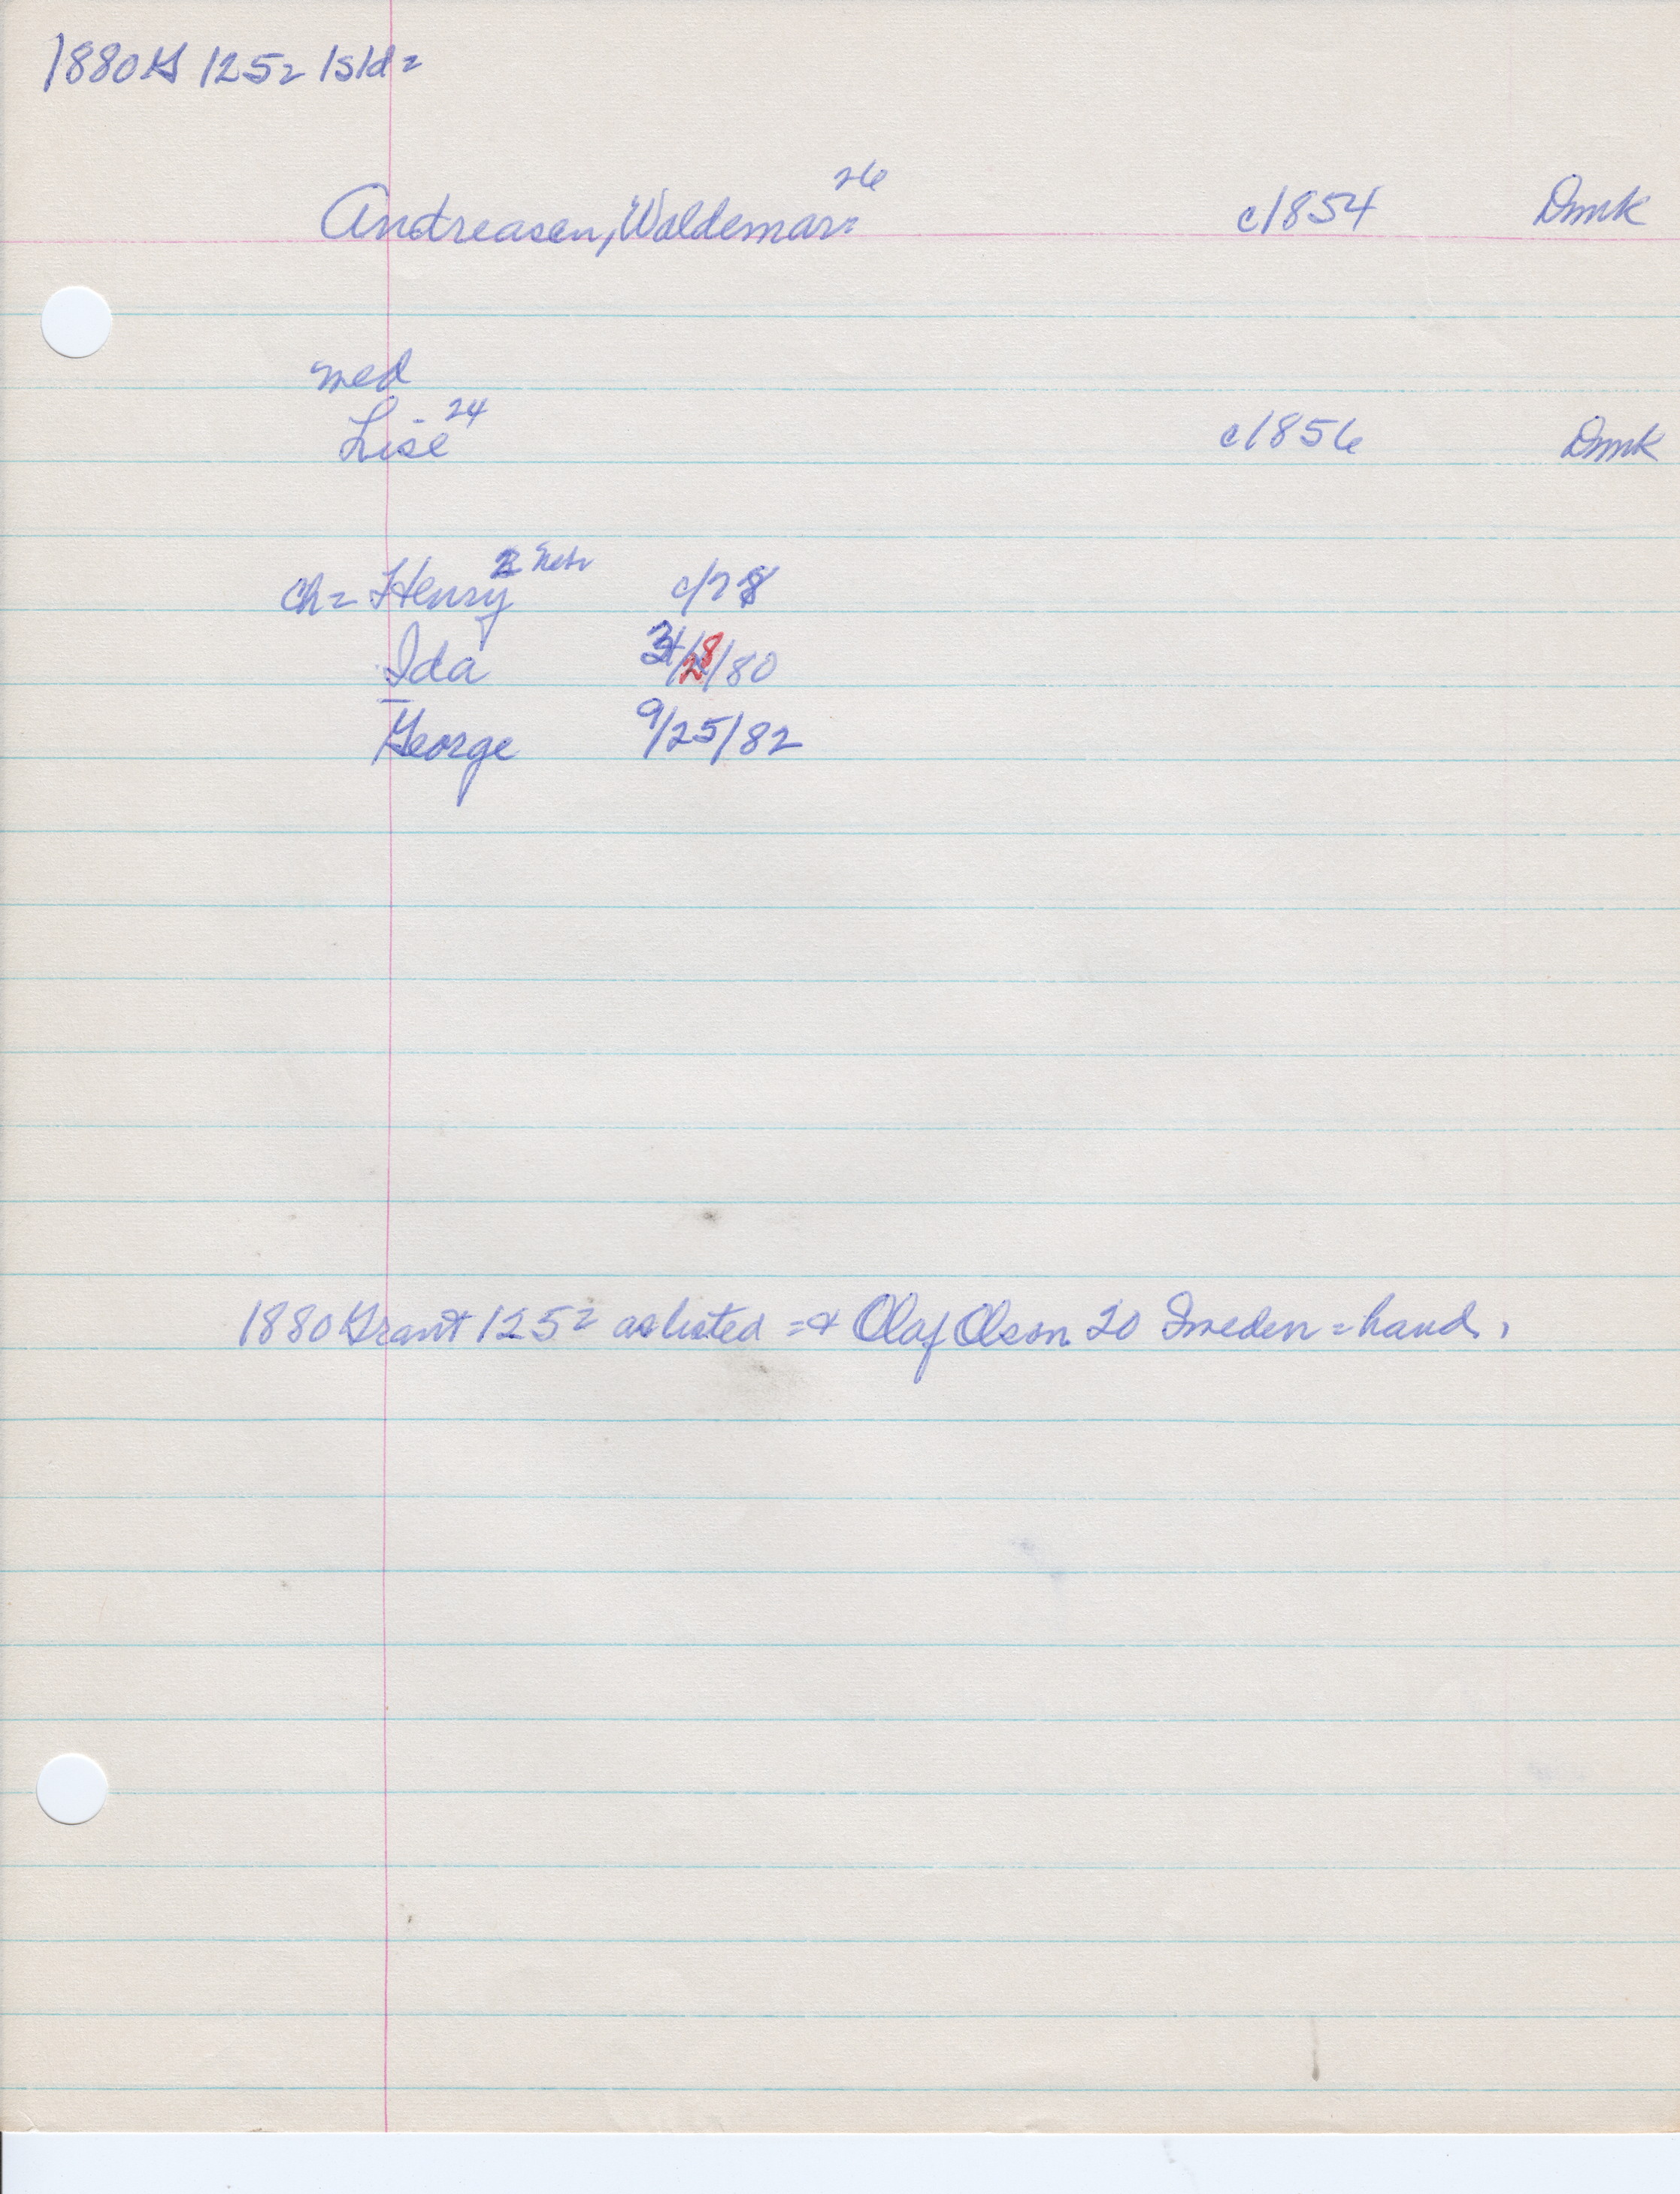 1880G 125= Isld=
26
Andreasen, Waldemar= c1854 Dmk
med
24
Lise c1856 Dmk
2 Nebr
ch= Henry c/78
Ida 3/28/80
George 9/25/82
1880 Grant 125= as listed =+ Olaf Olson 20 Sweden = hand.